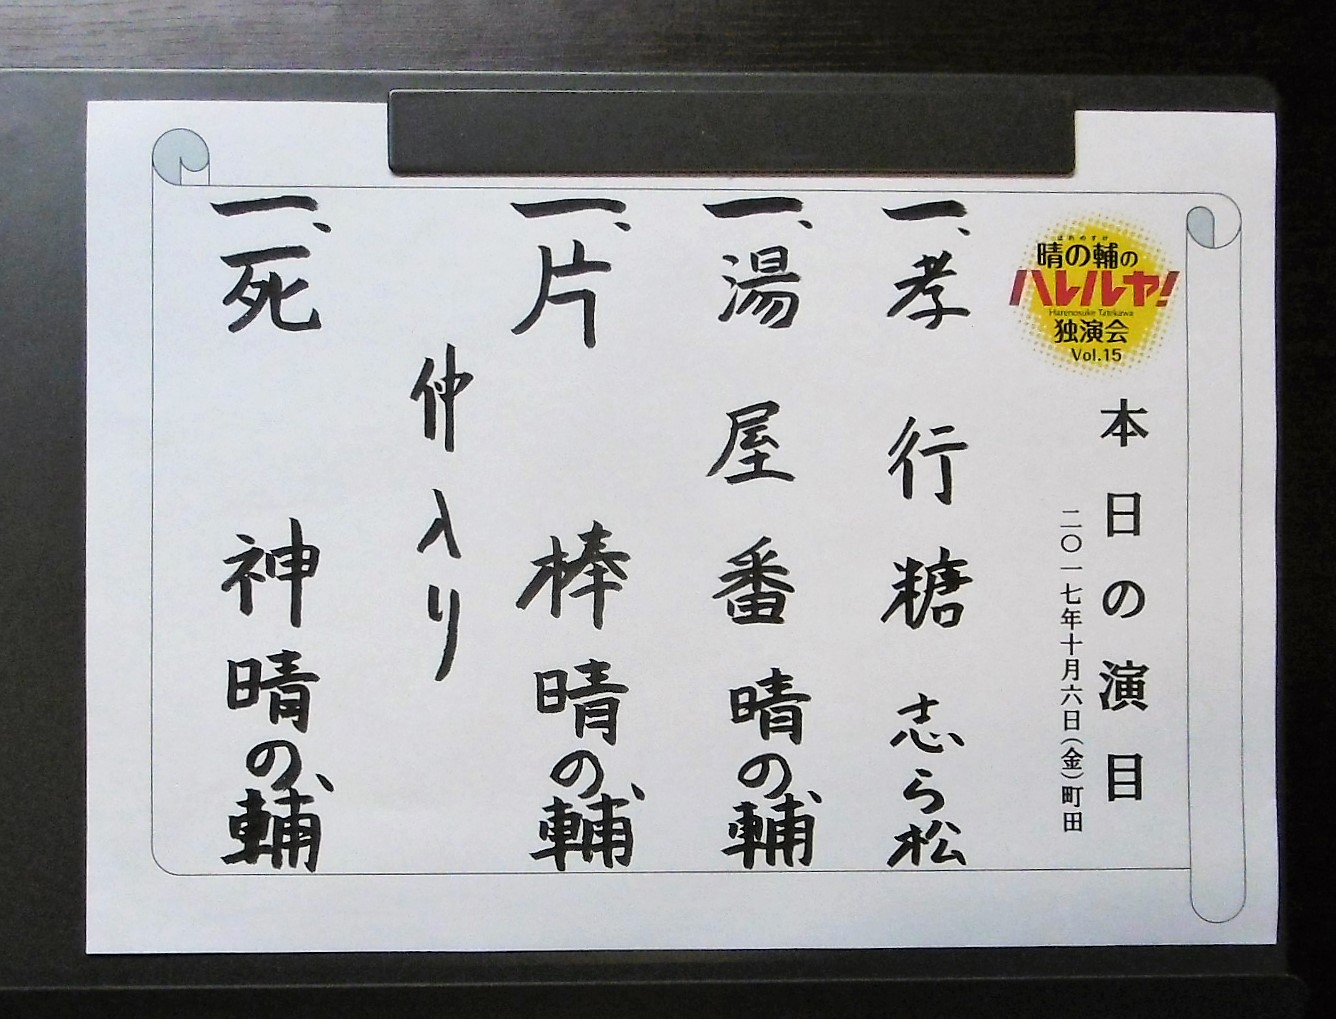 はれのすけ
晴の輔の
ハレルヤ!
Harenosuke Tatekawa
独演会
Vol.15
本日の演目
二〇一七年十月六日(金)町田
一、孝行糖 志ら松
一、湯屋番 晴の輔
一、片棒 晴の輔
仲入り
一、死神 晴の輔